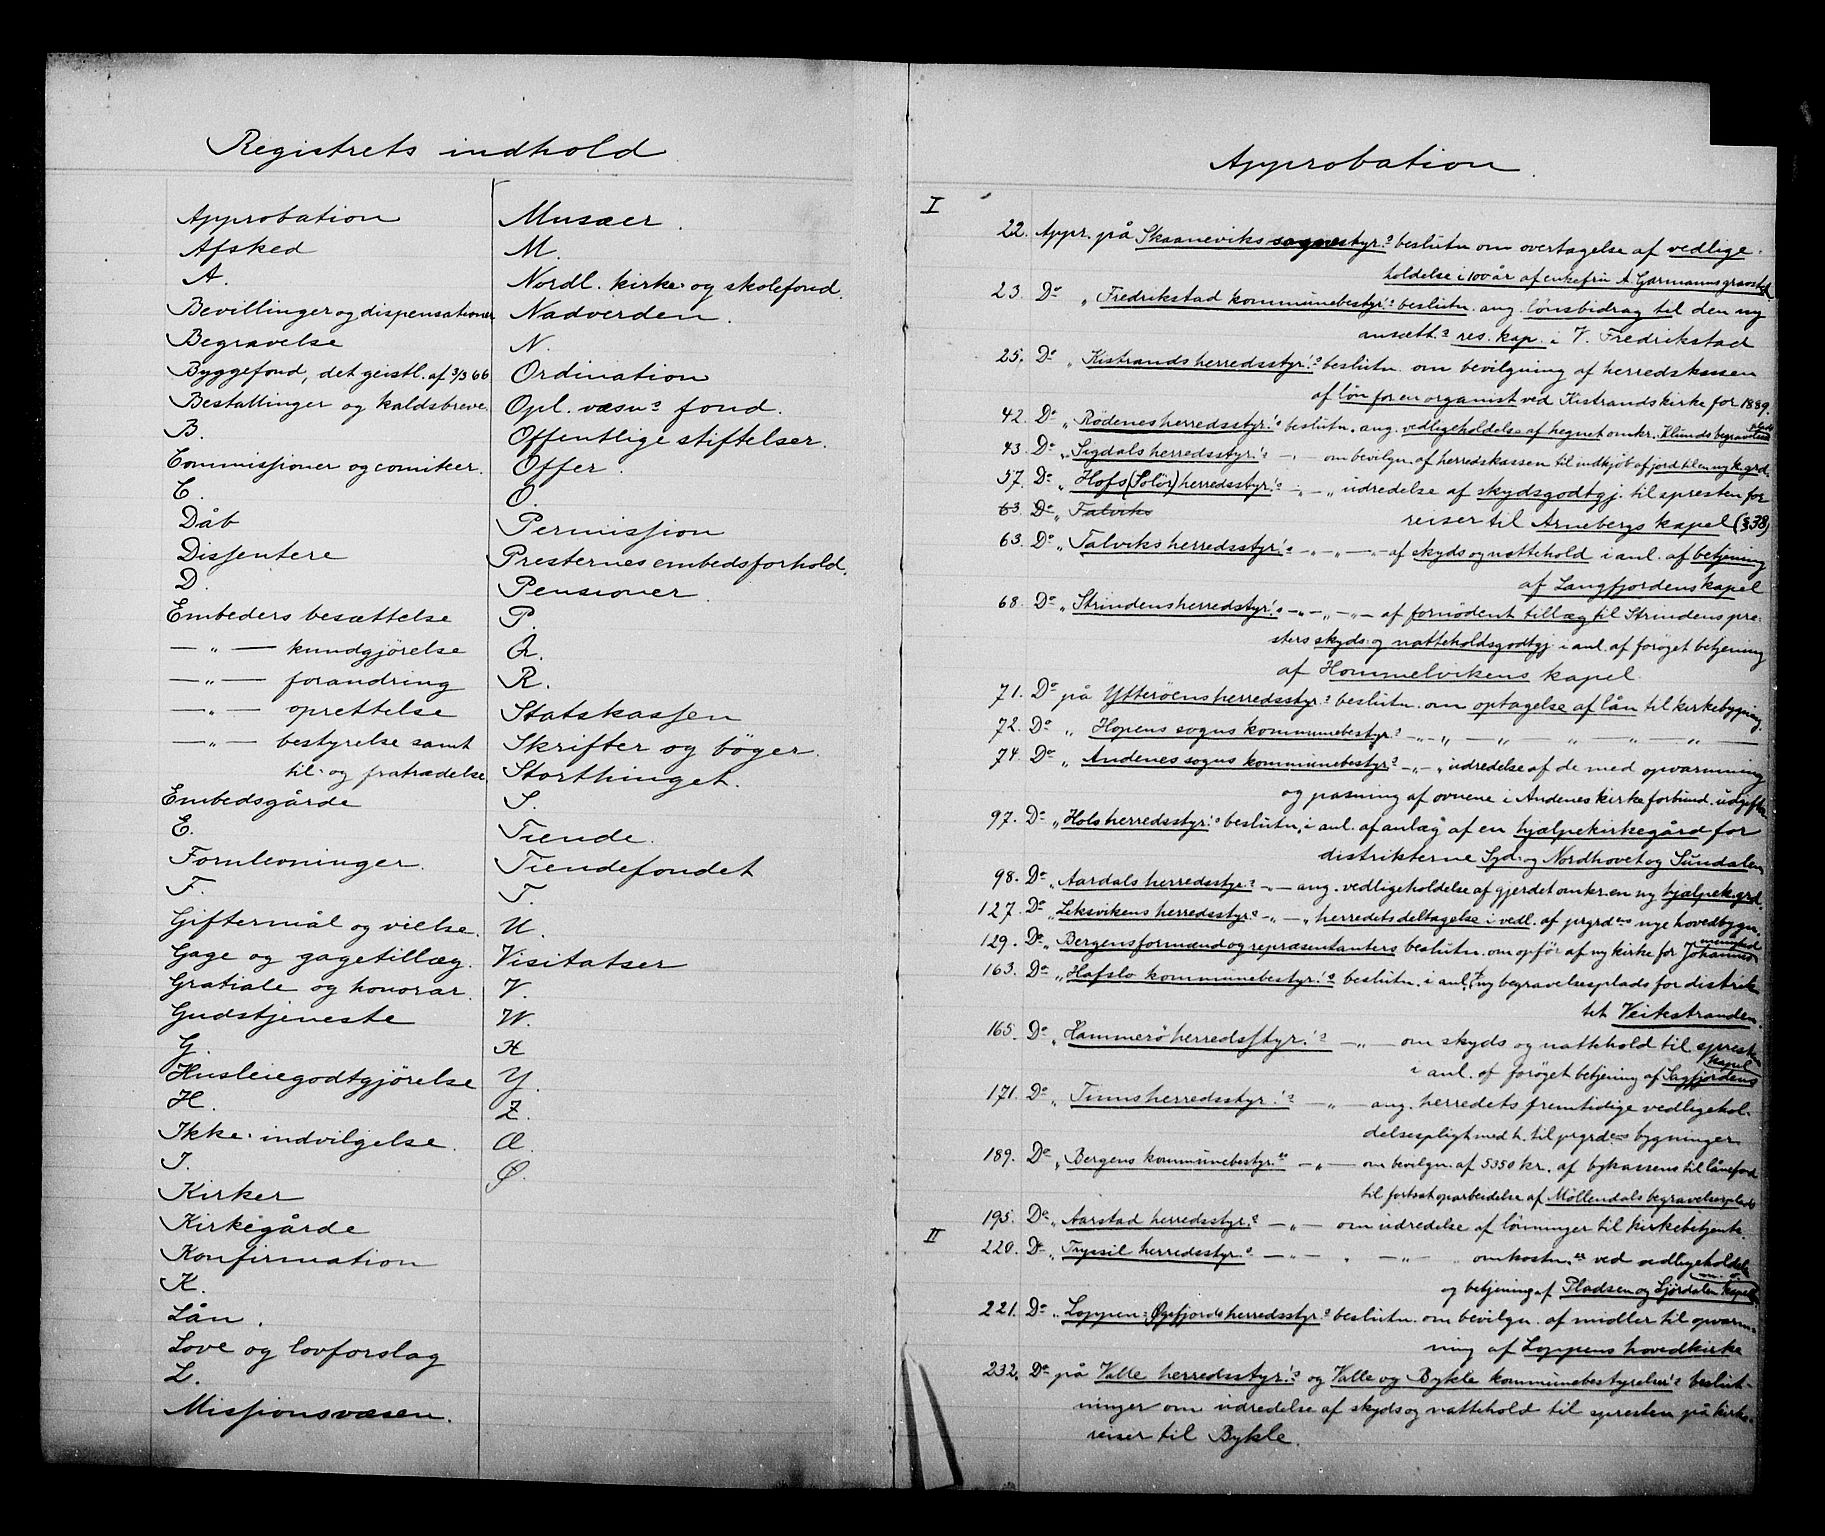 Registrets indhold.
Approbation
Afsked
A.
Bevillinger og dispensationer
Begravelse
Byggefond, det geistl. af 3/3 66
Bestallinger og kaldsbreve.
B.
Commissjoner og comiteer.
C.
Dåb
Dissentere
D.
Embeders besættelse
— " — kundgjörelse
— " — forandring
— " — oprettelse
— " — bestyrelse samt
til- og fratrædelse
Embedsgårde
E.
Fornlevninger.
F.
Giftermål og vielse.
Gage og gagetillæg.
Gratiale og honorar.
Gudstjeneste
G
Husleiegodtgjörelse
H.
Ikke-indvilgelse.
I.
Kirker
Kirkegårde
Konfirmation
K.
Lån.
Love og lovforslag
L.
Missjonsvæsen.
Musæer.
M.
Nordl. kirke- og skolefond.
Nadverden.
N.
Ordination
Opl. væsns fond.
Offentlige stiftelser.
Offer.
O.
Permission
Presternes embedsforhold.
Pensioner.
P.
Q.
R.
Statskassen
Skrifter og böger.
Storthinget.
S.
Tiende.
Tiendefondet
T.
U.
Visitatser
V.
W.
X
Y.
Z.
Æ.
Ø.
Approbation.
I
22. Appr. på Skaaneviks sognestyr.s beslutn om overtagelse af vedlige-
holdelse i 100 år af enkefru A. Garmanns gravsted
23. Do " Fredrikstad kommunebestyr.s beslutn. ang. lönsbidrag til den ny
ansætt. res. kap. i V. Fredrikstad
25. Do " Kistrands herredsstyr.s beslutn om bevilgning af herredskassen
af lön for en organist ved Kistrands kirke for 1889.
42. Do " Rödenes herredsstyr.s beslutn. ang. vedligeholdelse af hegnet omkr. Klunds begravelsesplads
43. Do " Sigdals herredsstyr.s — " — om bevilgn. af herredskassen til indkjöb af jord til en ny k.grd.
57. Do " Hofs (Solör) herredsstyr.s — " — " udredelse af skydsgodtgj. til spresten for
reiser til Arnebergs kapel (§ 38)
63. Do " Talviks
63. Do " Talviks herredsstyr.s — " — " — " — af skyds og nattehold i anl. af betjening
af Langfjordens kapel
68. Do " Strindens herredstyr.s — " — " — " — af fornödent tillæg til Strindens pre-
sters skyds- og natteholdsgodtgj i anl. af foröget betjening
af Hommelvikens kapel.
71. Do på Ytteröens herredsstyr.s beslutn. om optagelse af lån til kirkebygning.
72. Do " Hopens sogns kommunebestyr.s — " — " — " — " — " — " —
74. Do " Andenes sogns kommunebestyr.s — " — " udredelse af de med opvarmning
og pasning af ovnene i Andenes kirke forbund. udgifter
97. Do " Hols herredsstyr.s beslutn. i anl. af anlæg af en hjælpekirkegård for
distrikterne Syd- og Nordhovet og Sundalen
98. Do " Aardals herredsstyr.s — " — ang. vedligeholdelse af gjerdet omkr. en ny hjælpek.grd.
127. Do " Leksvikens herredsstyr.s — " — " herredets deltagelse i vedl. af prgrdens nye hovedbygn.
129. Do " Bergens formænd og repræsentanters beslutn. om opför af ny kirke for Johannes menighed
163. Do " Hafslo kommunebestyr.s beslutn. i anl. ny begravelsesplads for distrik-
tet Veitastranden.
165. Do " Hammerö herredsstyr.s — " — om skyds og nattehold til spresten
i anl. af foröget betjening af Sagfjordens kapel
171. Do " Tinns herredsstyr.s — " — ang. herredets fremtidige vedligehol-
delsespligt med h. til prgrdens bygninger
189. Do " Bergens kommunebestyr.s — " — om bevilgn. af 5350 kr. af bykassens til lånefond
til fortsat oparbeidelse af Möllendals begravelsesplads
195. Do " Aarstad herredsstyr.s — " — om udredelse af lönninger til kirkebetjente.
II
220. Do " Trysil herredsstyr.s — " — " — " — " omkostn. ved vedligeholdelse
og betjening af Pladsen og Ljördalen kapeller
221. Do " Loppen- Øxfjords herredsstyr.s beslutn. om bevilgn. af midler til opvarm-
ning af Loppens hovedkirke
232. Do på Valle herredsstyr.s og Valle og Bykle kommunebestyrelser.s beslut-
ninger om udredelse af skyds og nattehold til spresten på kirke-
reiser til Bykle.